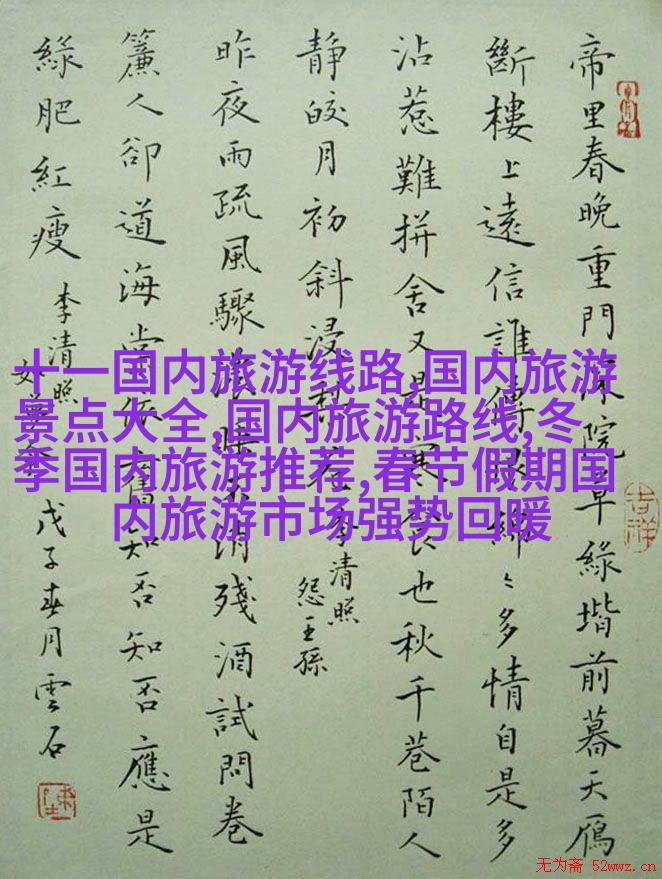 帝里春晚重門深院草緑堦前暮天鴈
斷樓上遠信誰傳恨綿〻多情自是多
沾惹難拼舍又是寒食也秋千巷陌人
靜皎月初斜浸梨花李清照
怨王孫
昨夜雨疏風驟濃睡不消殘酒試問卷
簾人卻道海棠依舊知否知否應是
緑肥紅瘦
李清照
戊子春月雲石
吉祥
十一国内旅游线路,国内旅游
景点大全,国内旅游路线,冬
季国内旅游推荐,春节假期国
内旅游市场强势回暖
无为斋 52wwz.cn